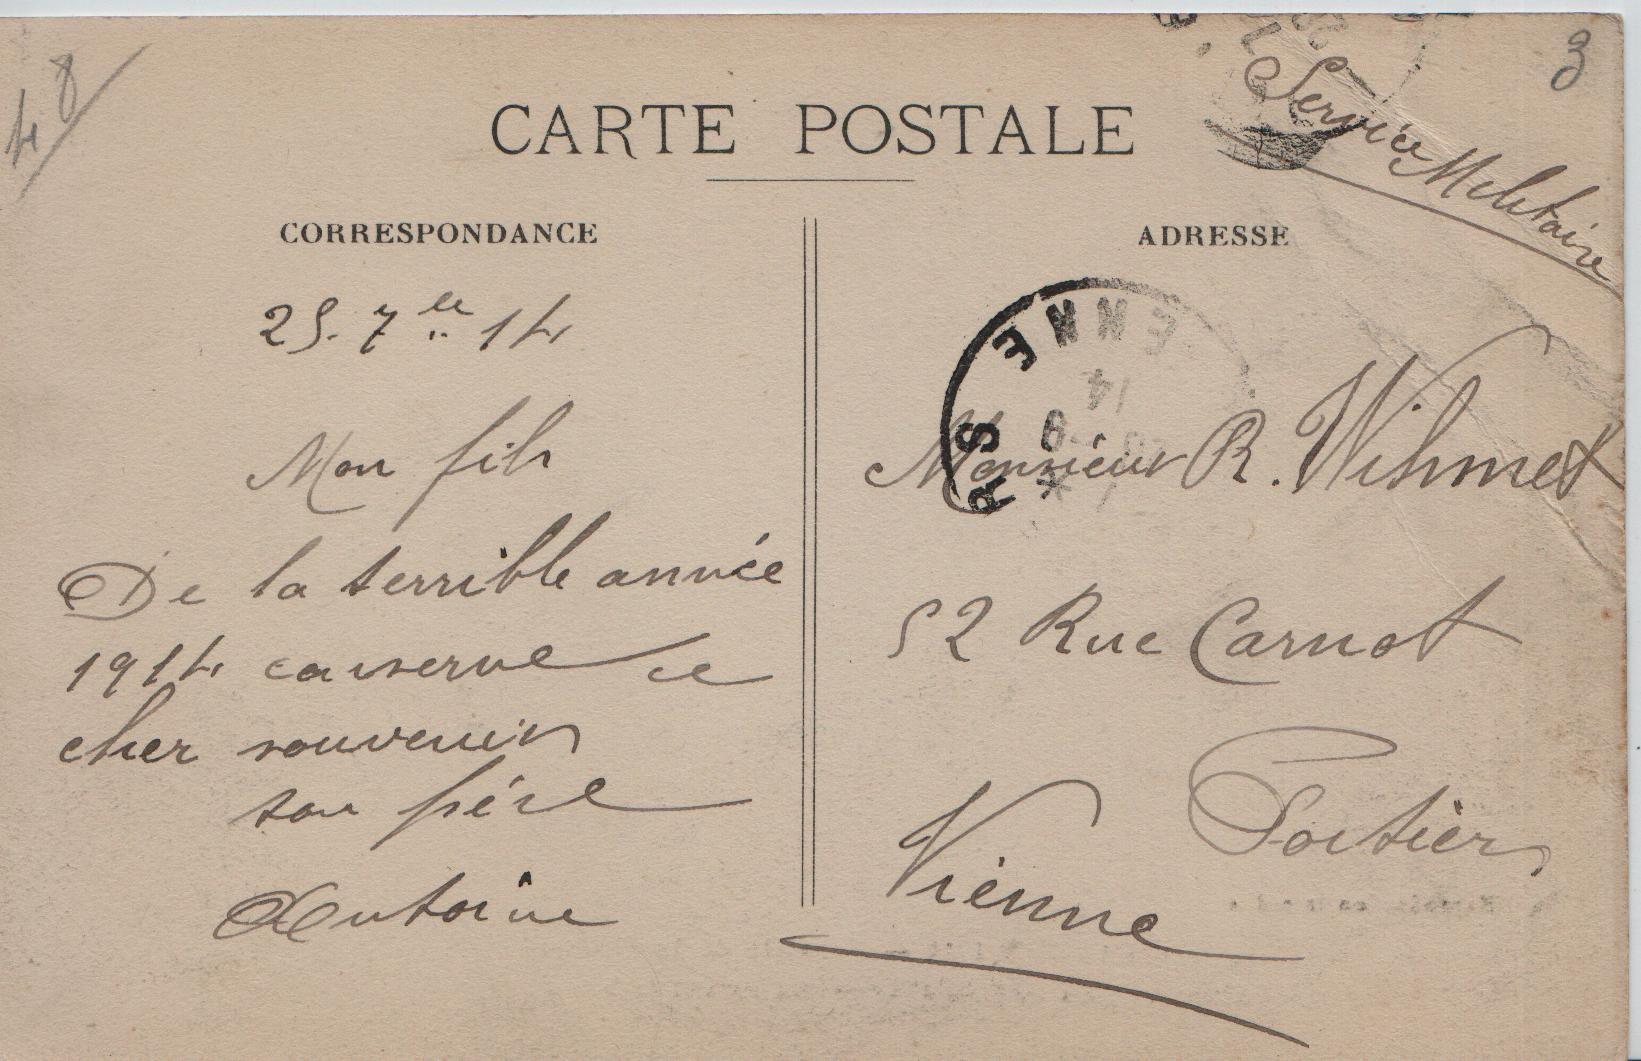 48
3
Service Militaire
CARTE POSTALE
CORRESPONDANCE
25. 7 bre 14
Mon fils
De la terrible année
1914 conserve ce
cher souvenir
ton père
Antoine
ADRESSE
ENNE
14
Monsieur R. Wihmet
52 Rue Carnot
Poitiers
Vienne